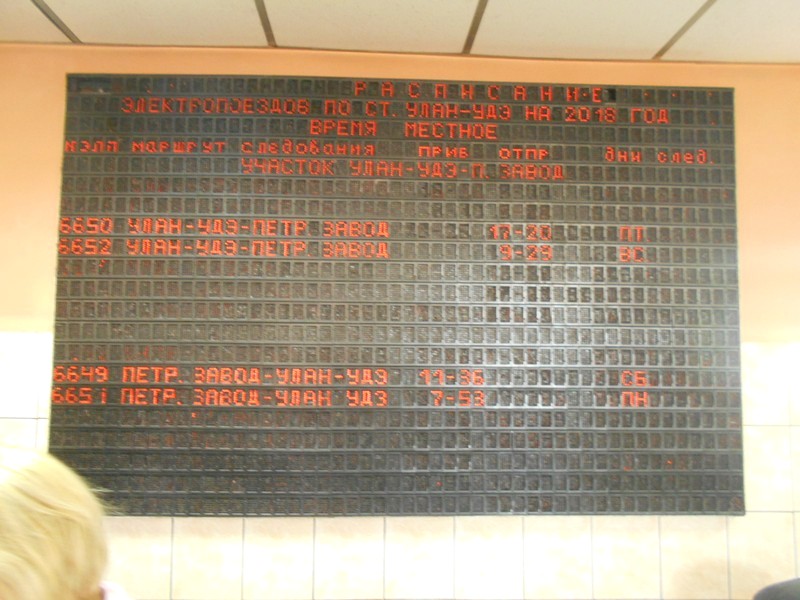 РАСПИСАНИЕ
ЭЛЕКТРОПОЕЗДОВ ПО СТ. УЛАН-УДЭ НА 2018 ГОД
ВРЕМЯ МЕСТНОЕ
NЭЛП МАРШРУТ следования ПРИБ ОТПР дни след.
УЧАСТОК УЛАН-УДЭ-П.ЗАВОД
6650 УЛАН-УДЭ-ПЕТР.ЗАВОД 17-20 ПТ
6652 УЛАН-УДЭ-ПЕТР.ЗАВОД 9-29 ВС
6649 ПЕТР.ЗАВОД-УЛАН-УДЭ 11-36 СБ
6651 ПЕТР.ЗАВОД-УЛАН УДЭ 7-53 ПН